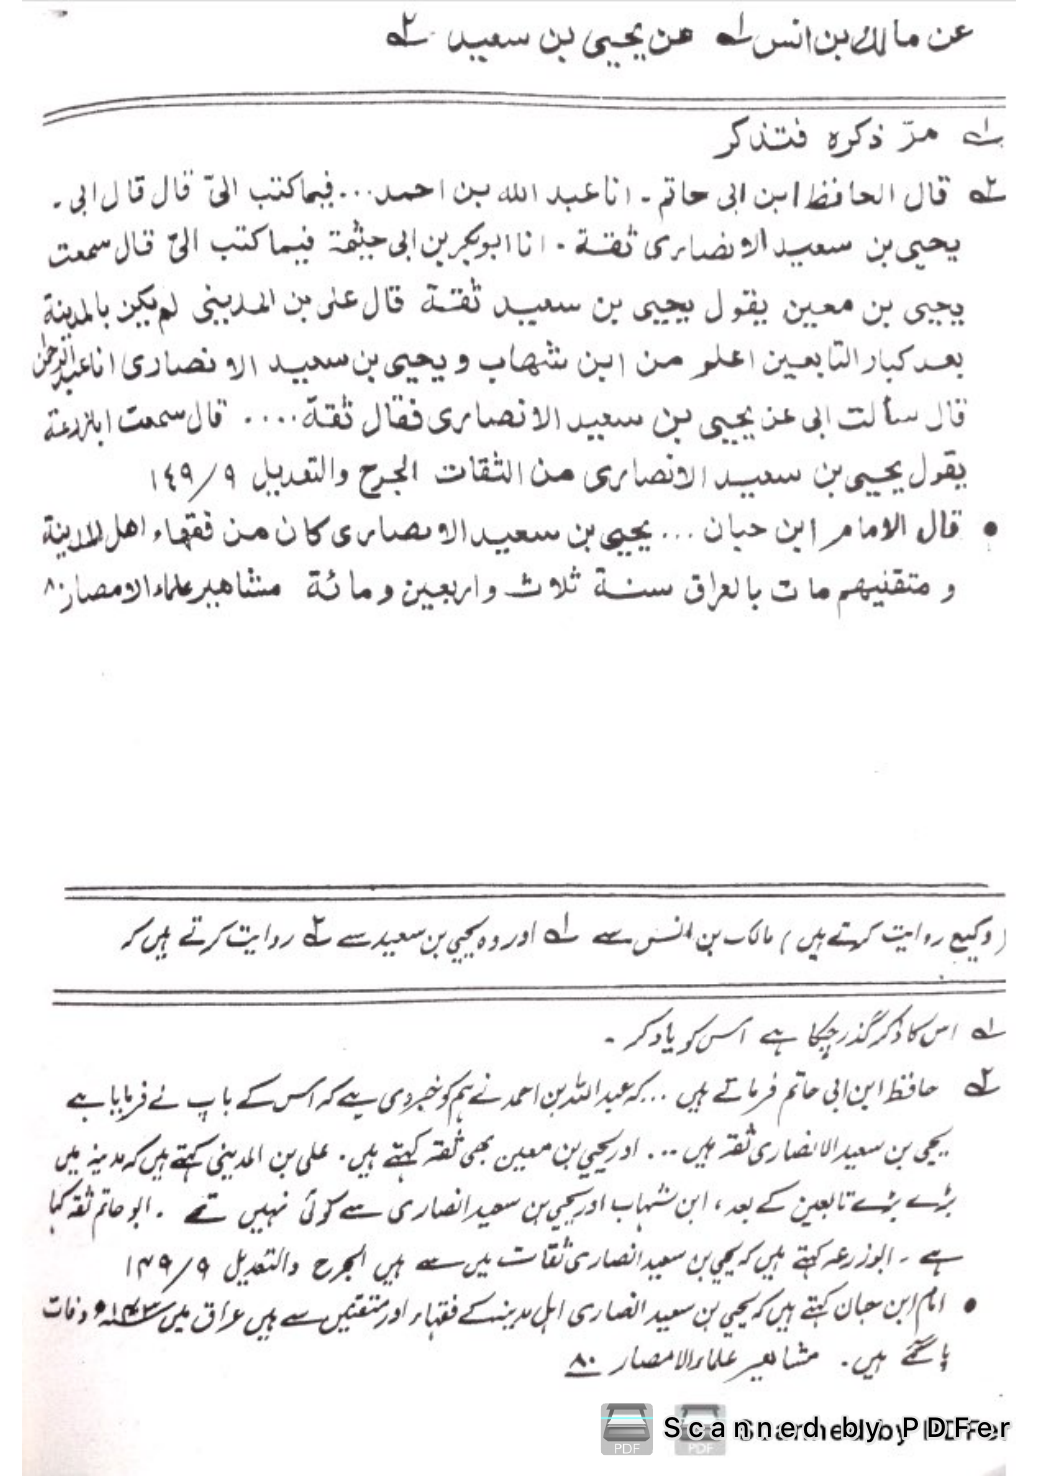 عن مالك بن انس ١ عن يحيى بن سعيد ٢
١ مرّ ذكره فتذكر
٢ قال الحافظ ابن ابى حاتم ۔ انا عبد الله بن احمد... فيما كتب الىّ قال قال ابى ۔
يحيى بن سعيد الانصارى ثقة ۔ انا ابوبكر بن ابى خيثمة فيما كتب الىّ قال سمعت
يحيى بن معين يقول يحيى بن سعيد ثقة قال على بن المدينى لم يكن بالمدينة
بعد كبار التابعين اعلم من ابن شهاب و يحيى بن سعيد الانصارى انا عبد الرحمٰن
قال سألت ابى عن يحيى بن سعيد الانصارى فقال ثقة .... قال سمعت ابا زرعة
يقول يحيى بن سعيد الانصارى من الثقات الجرح والتعديل ٩/١٤٩
• قال الامام ابن حبان ... يحيى بن سعيد الانصارى كان من فقهاء اهل المدينة
و متقنيهم مات بالعراق سنة ثلاث واربعين ومائة مشاهير علماء الامصار ٨٠
(وکیع روایت کرتے ہیں) مالک بن انس سے ١ اور وہ یحیی بن سعید سے ٢ روایت کرتے ہیں کہ
١ اس کا ذکر گذر چکا ہے اس کو یاد کر ۔
٢ حافظ ابن ابی حاتم فرماتے ہیں ... کہ عبد اللہ بن احمد نے ہم کو خبر دی ہے کہ اس کے باپ نے فرمایا ہے
یحیی بن سعید الانصاری ثقہ ہیں ... اور یحیی بن معین بھی ثقہ کہتے ہیں۔ علی بن المدینی کہتے ہیں کہ مدینہ میں
بڑے بڑے تابعین کے بعد، ابن شہاب اور یحیی بن سعید انصاری سے کوئی نہیں تھے ۔ ابو حاتم ثقہ کہا
ہے ۔ ابوزرعہ کہتے ہیں کہ یحیی بن سعید انصاری ثقات میں سے ہیں الجرح والتعدیل ۹/۱۴۹
• امام ابن حبان کہتے ہیں کہ یحیی بن سعید انصاری اہل مدینہ کے فقہاء اور متقنین سے ہیں عراق میں ۱۴۳ھ وفات
پا گئے ہیں۔ مشاھیر علماء الامصار ۸۰
Scanned by PDFer